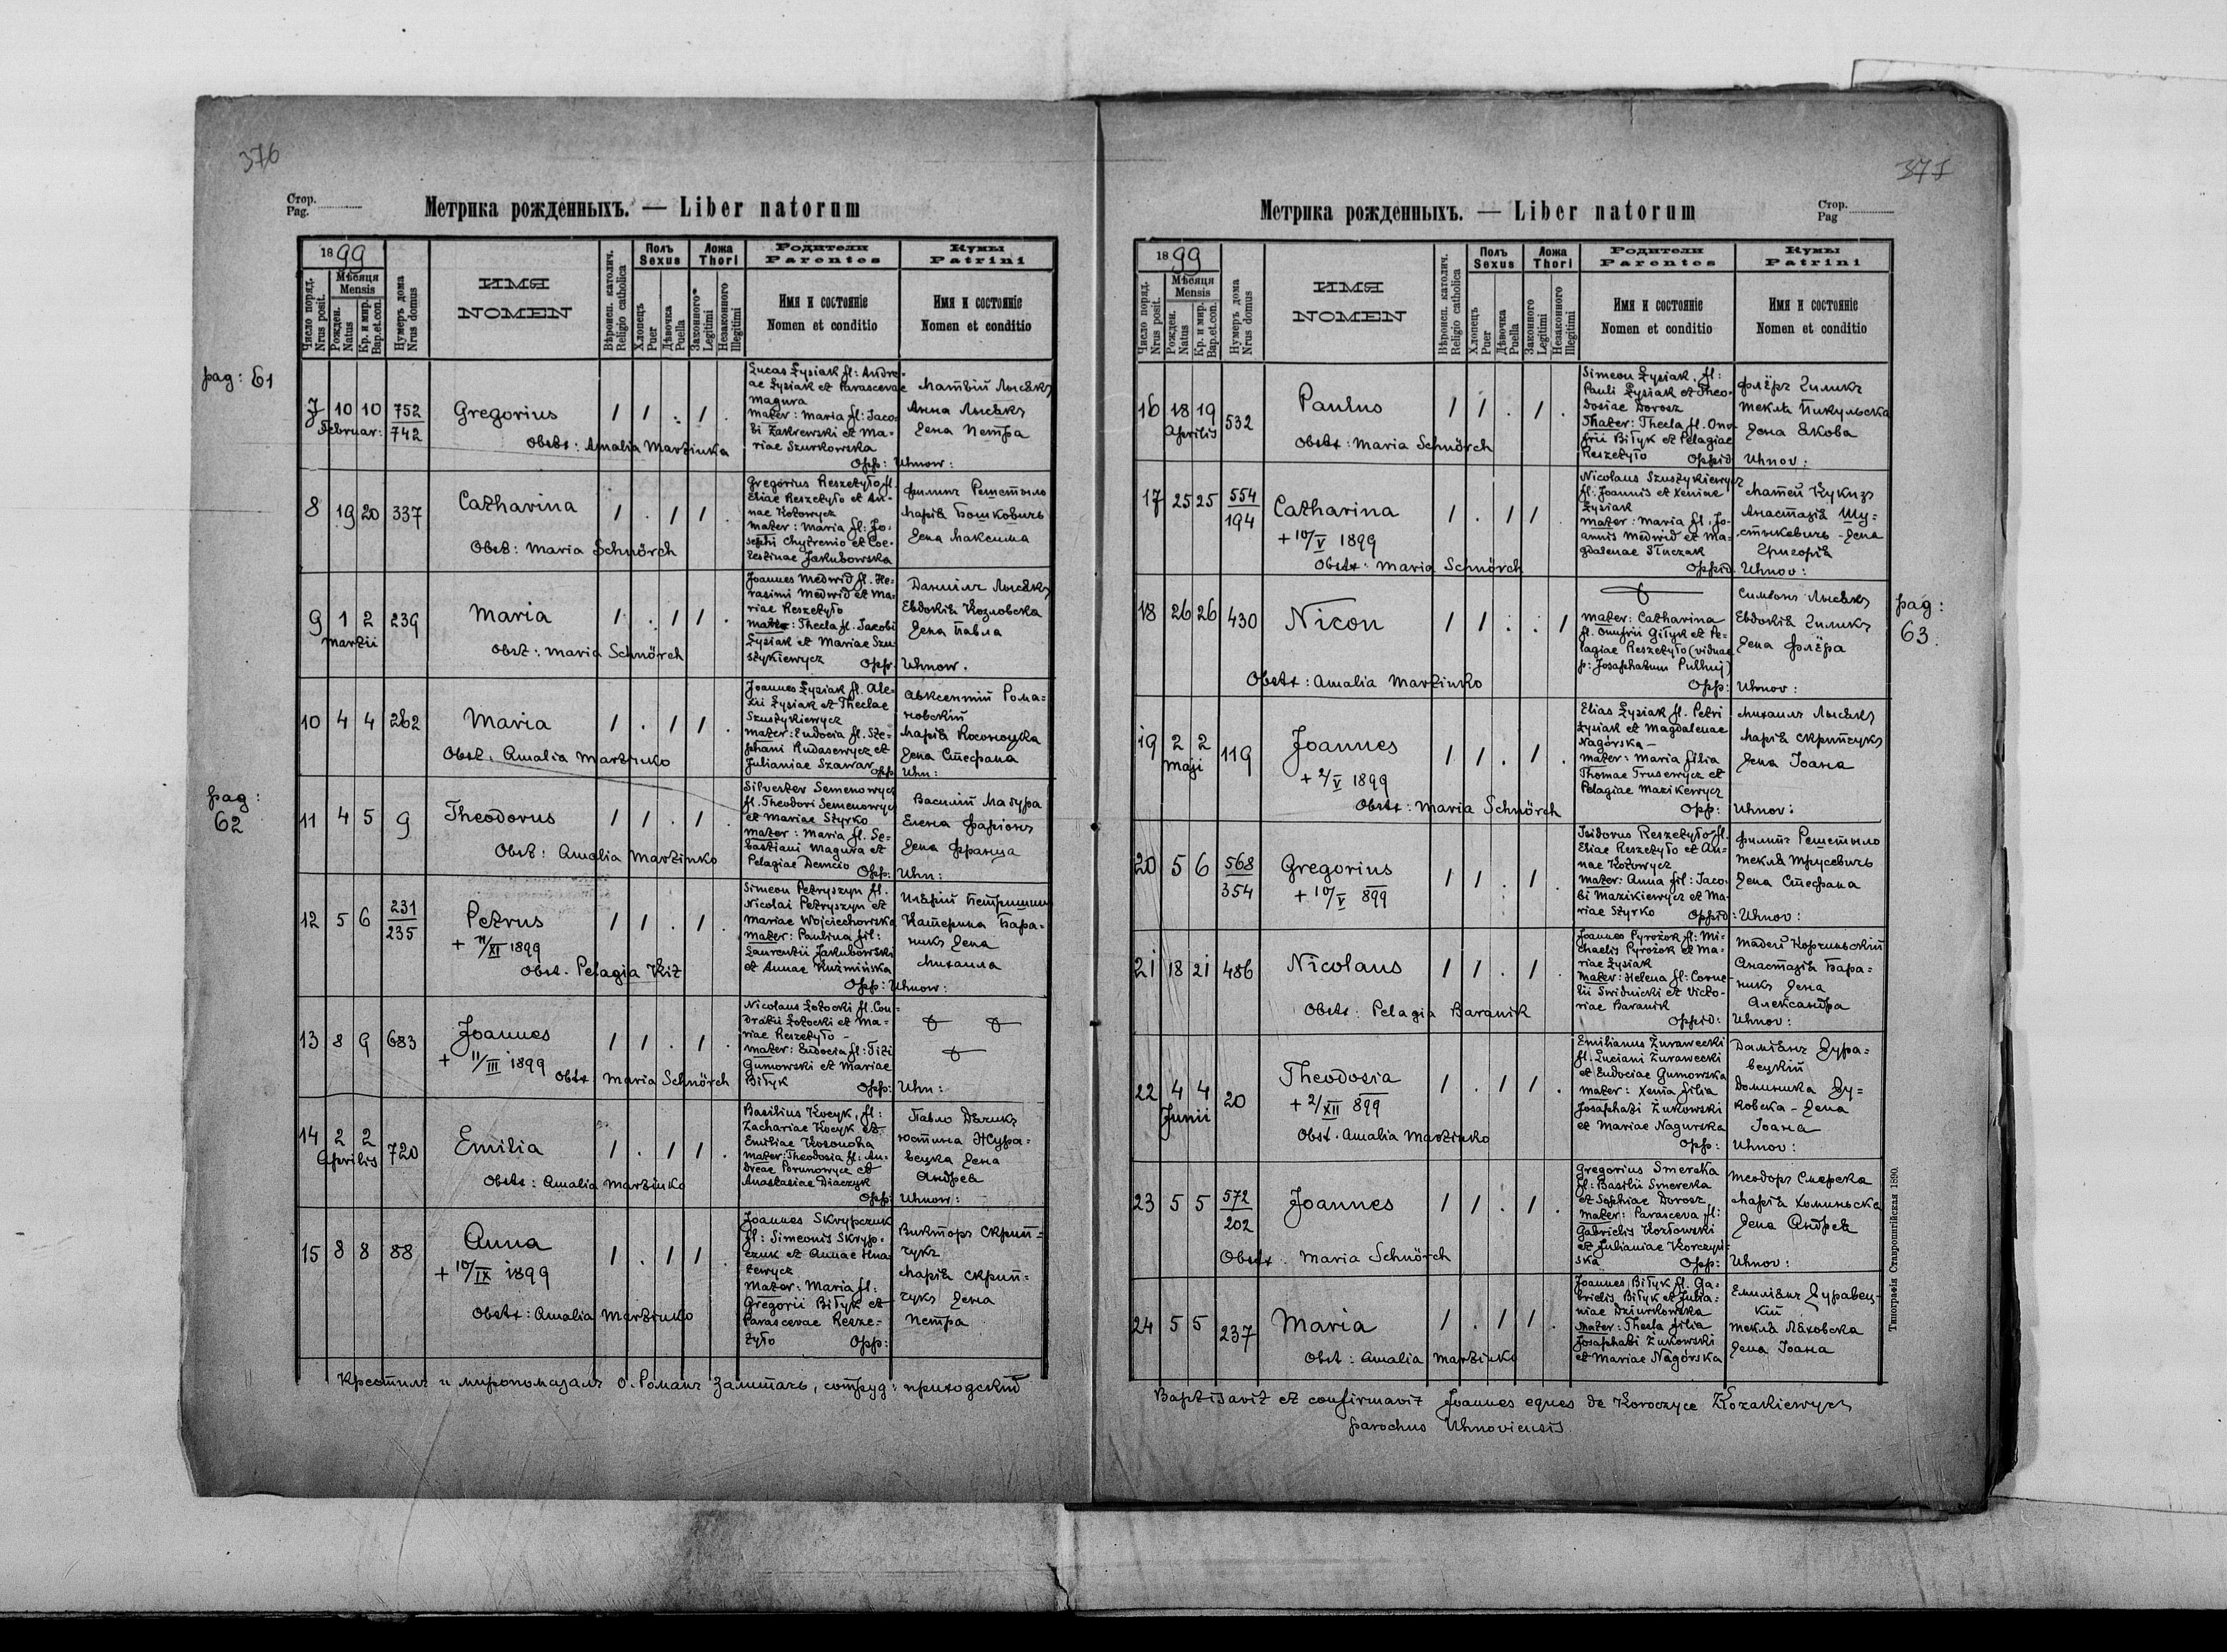 376
Стор.
Pag.
Метрика рожденныхъ. — Liber natorum
1899
Число поряд.
Nrus posit.
Мѣсяця
Mensis
Рожден.
Natus
Кр. и мир.
Bap. et con.
Нумеръ дома
Nrus domus
ИМЯ
NOMEN
Вѣроисп. католич.
Religio catholica
Полъ
Sexus
Хлопецъ
Puer
Дѣвочка
Puella
Ложа
Thori
Законного
Legitimi
Незаконного
Illegitimi
Родители
Parentes
Имя и состоянiе
Nomen et conditio
Кумы
Patrini
Имя и состоянiе
Nomen et conditio
pag: 61
7 10 10 752
Februar: 742
Gregorius
1 1 . 1 .
Obstx: Amalia Martinko
Lucas Łysiak fl: Andre-
ae Łysiak et Parascevae
Magura
Mater: Maria fl: Jaco-
bi Zakrewski et Ma-
riae Szurkowska
Opp: Uhnow:
Матвій Лысякъ
Анна Лысякъ
жена Петра
8 19 20 337
Catharina
1 . 1 1
Obst: Maria Schnörch
Gregorius Reszetyło fl.
Eliae Reszetyło et An-
nae Kotowycz
Mater: Maria fl: Jo-
sephi Chytrenio et Coe-
lestinae Jakubowska
Филипъ Решетыло
Марія Бошковичъ
жена Максима
9 1 2 239
Martii
Maria
1 . 1 1 .
Obst: Maria Schnörch
Joannes Medwid fl. He-
rasimi Medwid et Ma-
riae Reszetyło
Mater: Thecla fl. Jakobi
Łysiak et Mariae Szu-
stykiewycz Opp. Uhnow.
Даніилъ Лысякъ
Евдокія Козловска
жена Павла
10 4 4 262
Maria
1 . 1 1 .
Obst: Amalia Martinko
Joannes Łysiak fl. Ale-
xii Łysiak et Theclae
Szustykiewycz
Mater: Eudocia fl. Ste-
phani Rudasewycz et
Julianiae Szawar Opp Uhn:
Авксентій Рома-
новскій
Марія Косоноцка
жена Стефана
pag:
62
11 4 5 9
Theodorus
1 1 . 1 .
Obst: Amalia Martinko
Silvester Semenowycz
fl. Theodori Semenowycz
et Mariae Styrko
Mater: Maria fl. Se-
bastiani Magura et
Pelagiae Demcio Opp: Uhn:
Василій Магура
Елена Фаріонъ
жена Франца
12 5 6 231
235
Petrus
+ 11/XI 1899
1 1 . 1 .
Obst. Pelagia Kiz
Simeon Petryszyn fl.
Nicolai Petryszyn et
Mariae Wojciechowska
Mater: Paulina fil:
Laurentii Jakubowski
et Annae Kuźmińska
Opp: Uhnow:
Иларій Петришинъ
Катерина Бара-
никъ жена
Михаила
13 8 9 683
Joannes
+ 11/III 1899
1 1 . 1 .
Obstx Maria Schnörch
Nicolaus Łotocki fl. Con-
dratii Łotocki et Ma-
riae Reszetyło -
Mater: Eudocia fl: Titi
Gumowski et Mariae
Biłyk Opp: Uhn:
14 2 2 720
Aprilis
Emilia
1 . 1 1 .
Obstx: Amalia Martinko
Basilius Kocyk, fl:
Zachariae Kocyk et
Emiliae Kosonoha
Mater: Theodosia fl: An-
dreae Porunowycz et
Anastasiae Diaczyk
Opp: Uhnow:
Павло Дячикъ
Юстина Жура-
вецка жена
Андрея
15 8 8 88
Anna
+ 10/IX 1899
1 . 1 1 .
Obstx: Amalia Martinko
Joannes Skrypczuk
fl: Simeonis Skryp-
czuk et Annae Hna-
tewycz
Mater: Maria fl:
Gregorii Biłyk et
Parascevae Resze-
tyło Opp:
Викторъ Скрип-
чукъ
Марія Скрип-
чукъ жена
Петра
Крестилъ и миропомазалъ о. Романъ Залитачъ, сотруд: приходскій
371
Стор.
Pag
Метрика рожденныхъ. — Liber natorum
1899
Число поряд.
Nrus posit.
Мѣсяця
Mensis
Рожден.
Natus
Кр. и мир.
Bap. et con.
Нумеръ дома
Nrus domus
ИМЯ
NOMEN
Вѣроисп. католич.
Religio catholica
Полъ
Sexus
Хлопецъ
Puer
Дѣвочка
Puella
Ложа
Thori
Законного
Legitimi
Незаконного
Illegitimi
Родители
Parentes
Имя и состоянiе
Nomen et conditio
Кумы
Patrini
Имя и состоянiе
Nomen et conditio
16 18 19 532
Aprilis
Paulus
1 1 . 1 .
Obstx: Maria Schnörch
Simeon Łysiak, fl:
Pauli Łysiak et Theo-
dosiae Dorosz
Mater: Thecla fl. Onu-
frii Biłyk et Pelagiae
Reszetyło Oppid Uhnov:
Флёръ Чиликъ
Текля Пикульска
жена Якова
17 25 25 554
194
Catharina
+ 10/V 1899
1 . 1 1 .
Obstx: Maria Schnörch
Nicolaus Szustykiewycz
fl: Joannis et Xeniae
Łysiak
Mater: Maria fl. Jo-
annis Medwid et Ma-
gdalenae Słuczak
Oppid. Uhnov:
Матей Кукизъ
Анастазія Шу-
стыкевичъ - жена
Григорія
pag:
63.
18 26 26 430
Nicon
1 1 . . 1
Obstx: Amalia Martinko
Mater: Catharina
fl. Onufrii Biłyk et Pe-
lagiae Reszetyło (viduae
p: Josaphatum Pulhuj)
Opp: Uhnov:
Симеонъ Лысякъ
Евдокія Чиликъ
жена Флёра
19 2 2 119
Maji
Joannes
+ 2/V 1899
1 1 . 1 .
Obstx: Maria Schnörch
Elias Łysiak fl. Petri
Łysiak et Magdalenae
Nagórska -
Mater: Maria filia
Thomae Trusewycz et
Pelagiae Mazikewycz
Opp: Uhnov:
Михаилъ Лысякъ
Марія Скрипчукъ
жена Іоана
20 5 6 568
354
Gregorius
+ 10/V 899
1 1 . 1 .
Isidorus Reszetyło fl.
Eliae Reszetyło et An-
nae Kotowycz
Mater: Anna fil: Jaco-
bi Mazikiewycz et Ma-
riae Styrko Oppid: Uhnov:
Филипъ Решетыло
Текля Трусевичъ
жена Стефана
21 18 21 486
Nicolaus
1 1 . 1 .
Obstx: Pelagia Baranik
Joannes Pyrożok fl: Mi-
chaelis Pyrożok et Ma-
riae Łysiak
Mater: Helena fl: Corne-
lii Swidnicki et Victo-
riae Baranik
Oppid: Uhnov:
Тадей Корчиньскій
Анастазія Бара-
никъ жена
Александра
22 4 4 20
Junii
Theodosia
+ 2/XII 899
1 . 1 1 .
Obst. Amalia Martinko
Emilianus Żurawecki
fl. Luciani Żurawecki
et Eudociae Gumowska
Mater: Xenia filia
Josaphati Żukowski
et Mariae Nagurska
Opp: Uhnov:
Даміянъ Жура-
вецкій
Доминика Жу-
ковска - жена
Іоана
23 5 5 572
202
Joannes
1 1 . 1 .
Obstx. Maria Schnörch
Gregorius Smereka
fl: Basilii Smereka
et Sophiae Dorosz
Mater: Parasceva fl:
Gabrielis Kozłowski
et Julianiae Korczyń-
ska Opp: Uhnov:
Теодоръ Смерека
Марія Холиньска
жена Андрея
24 5 5 237
Maria
1 . 1 1 .
Obst: Amalia Martinko
Joannes Biłyk fl. Ga-
brielis Biłyk et Julia-
niae Dziurkowska
Mater: Thecla filia
Josaphati Żukowski
et Mariae Nagórska
Емиліянъ Журавец-
кій
Текля Ляховска
жена Іоана
Baptisavit et confirmavit Joannes eques de Koroczyce Kozakiewycz
parochus Uhnoviensis
Типографія Ставропигійская 1890.